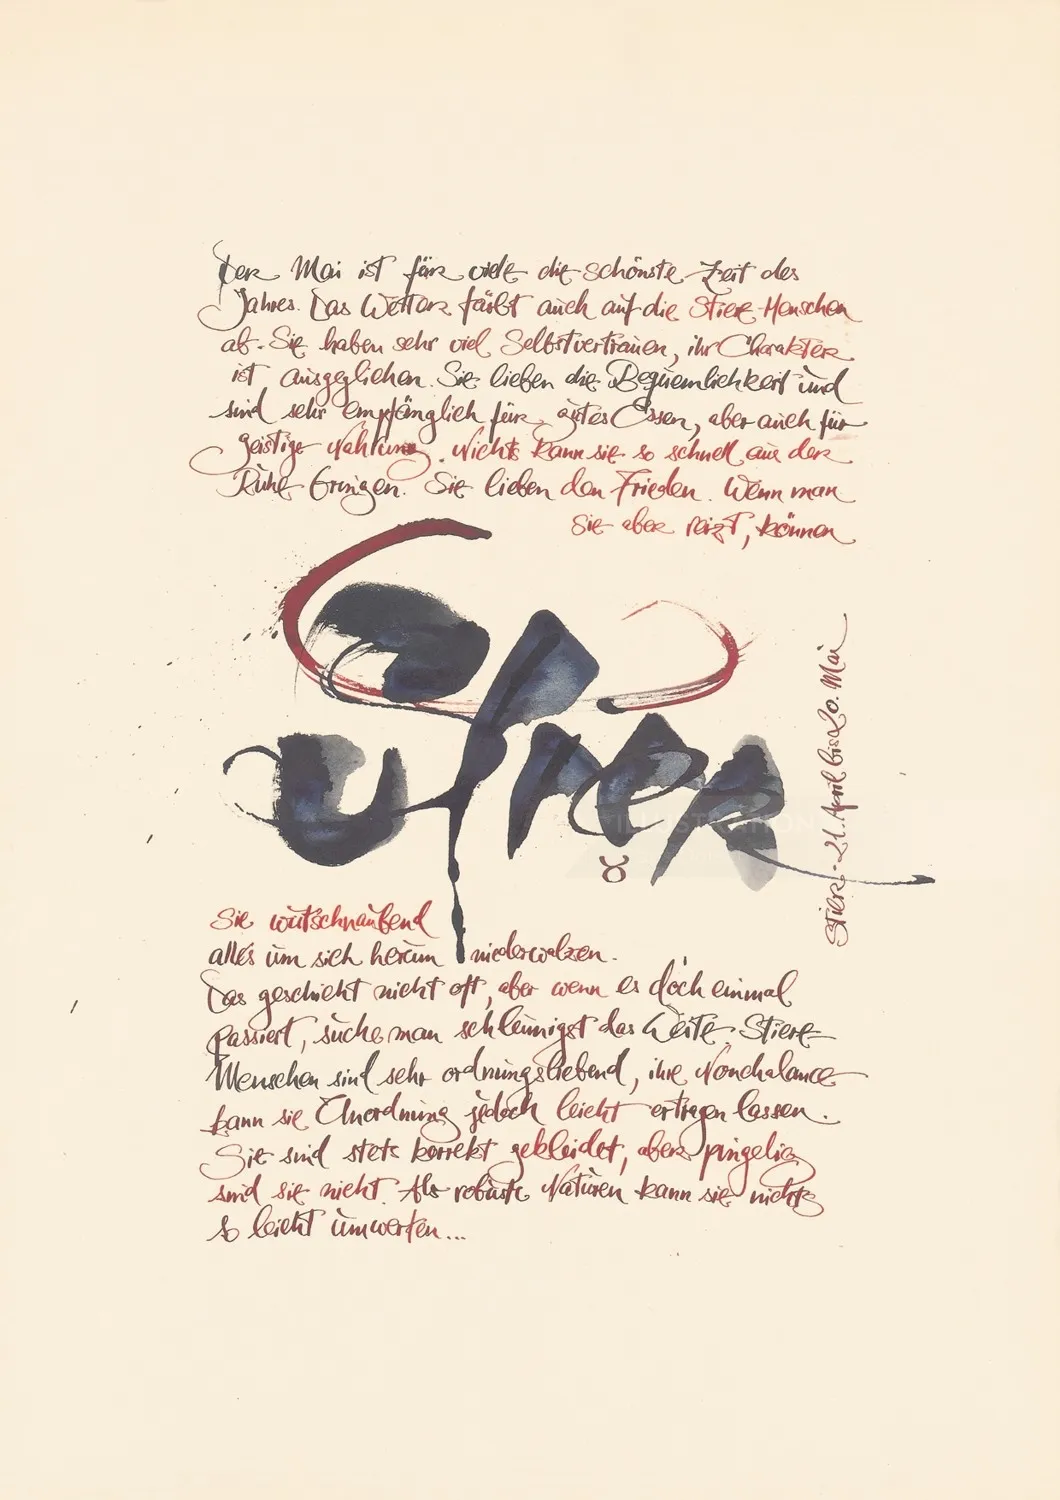 Der Mai ist für viele die schönste Zeit des
Jahres. Das Wetter färbt auch auf die Stier-Menschen
ab. Sie haben sehr viel Selbstvertrauen, ihr Charakter
ist ausgeglichen. Sie lieben die Bequemlichkeit und
sind sehr empfänglich für gutes Essen, aber auch für
geistige Nahrung. Nichts kann sie so schnell aus der
Ruhe bringen. Sie lieben den Frieden. Wenn man
Sie aber reizt, können
Stier
♉
Stier · 21. April bis 20. Mai
Sie wutschnaubend
alles um sich herum niederwalzen.
Das geschieht nicht oft, aber wenn es doch einmal
passiert, suche man schleunigst das Weite. Stiere-
Menschen sind sehr ordnungsliebend, ihre Nonchalance
kann sie Unordnung jedoch leicht ertragen lassen.
Sie sind stets korrekt gekleidet, aber pingelig
sind sie nicht. Als robuste Naturen kann sie nichts
so leicht umwerfen...